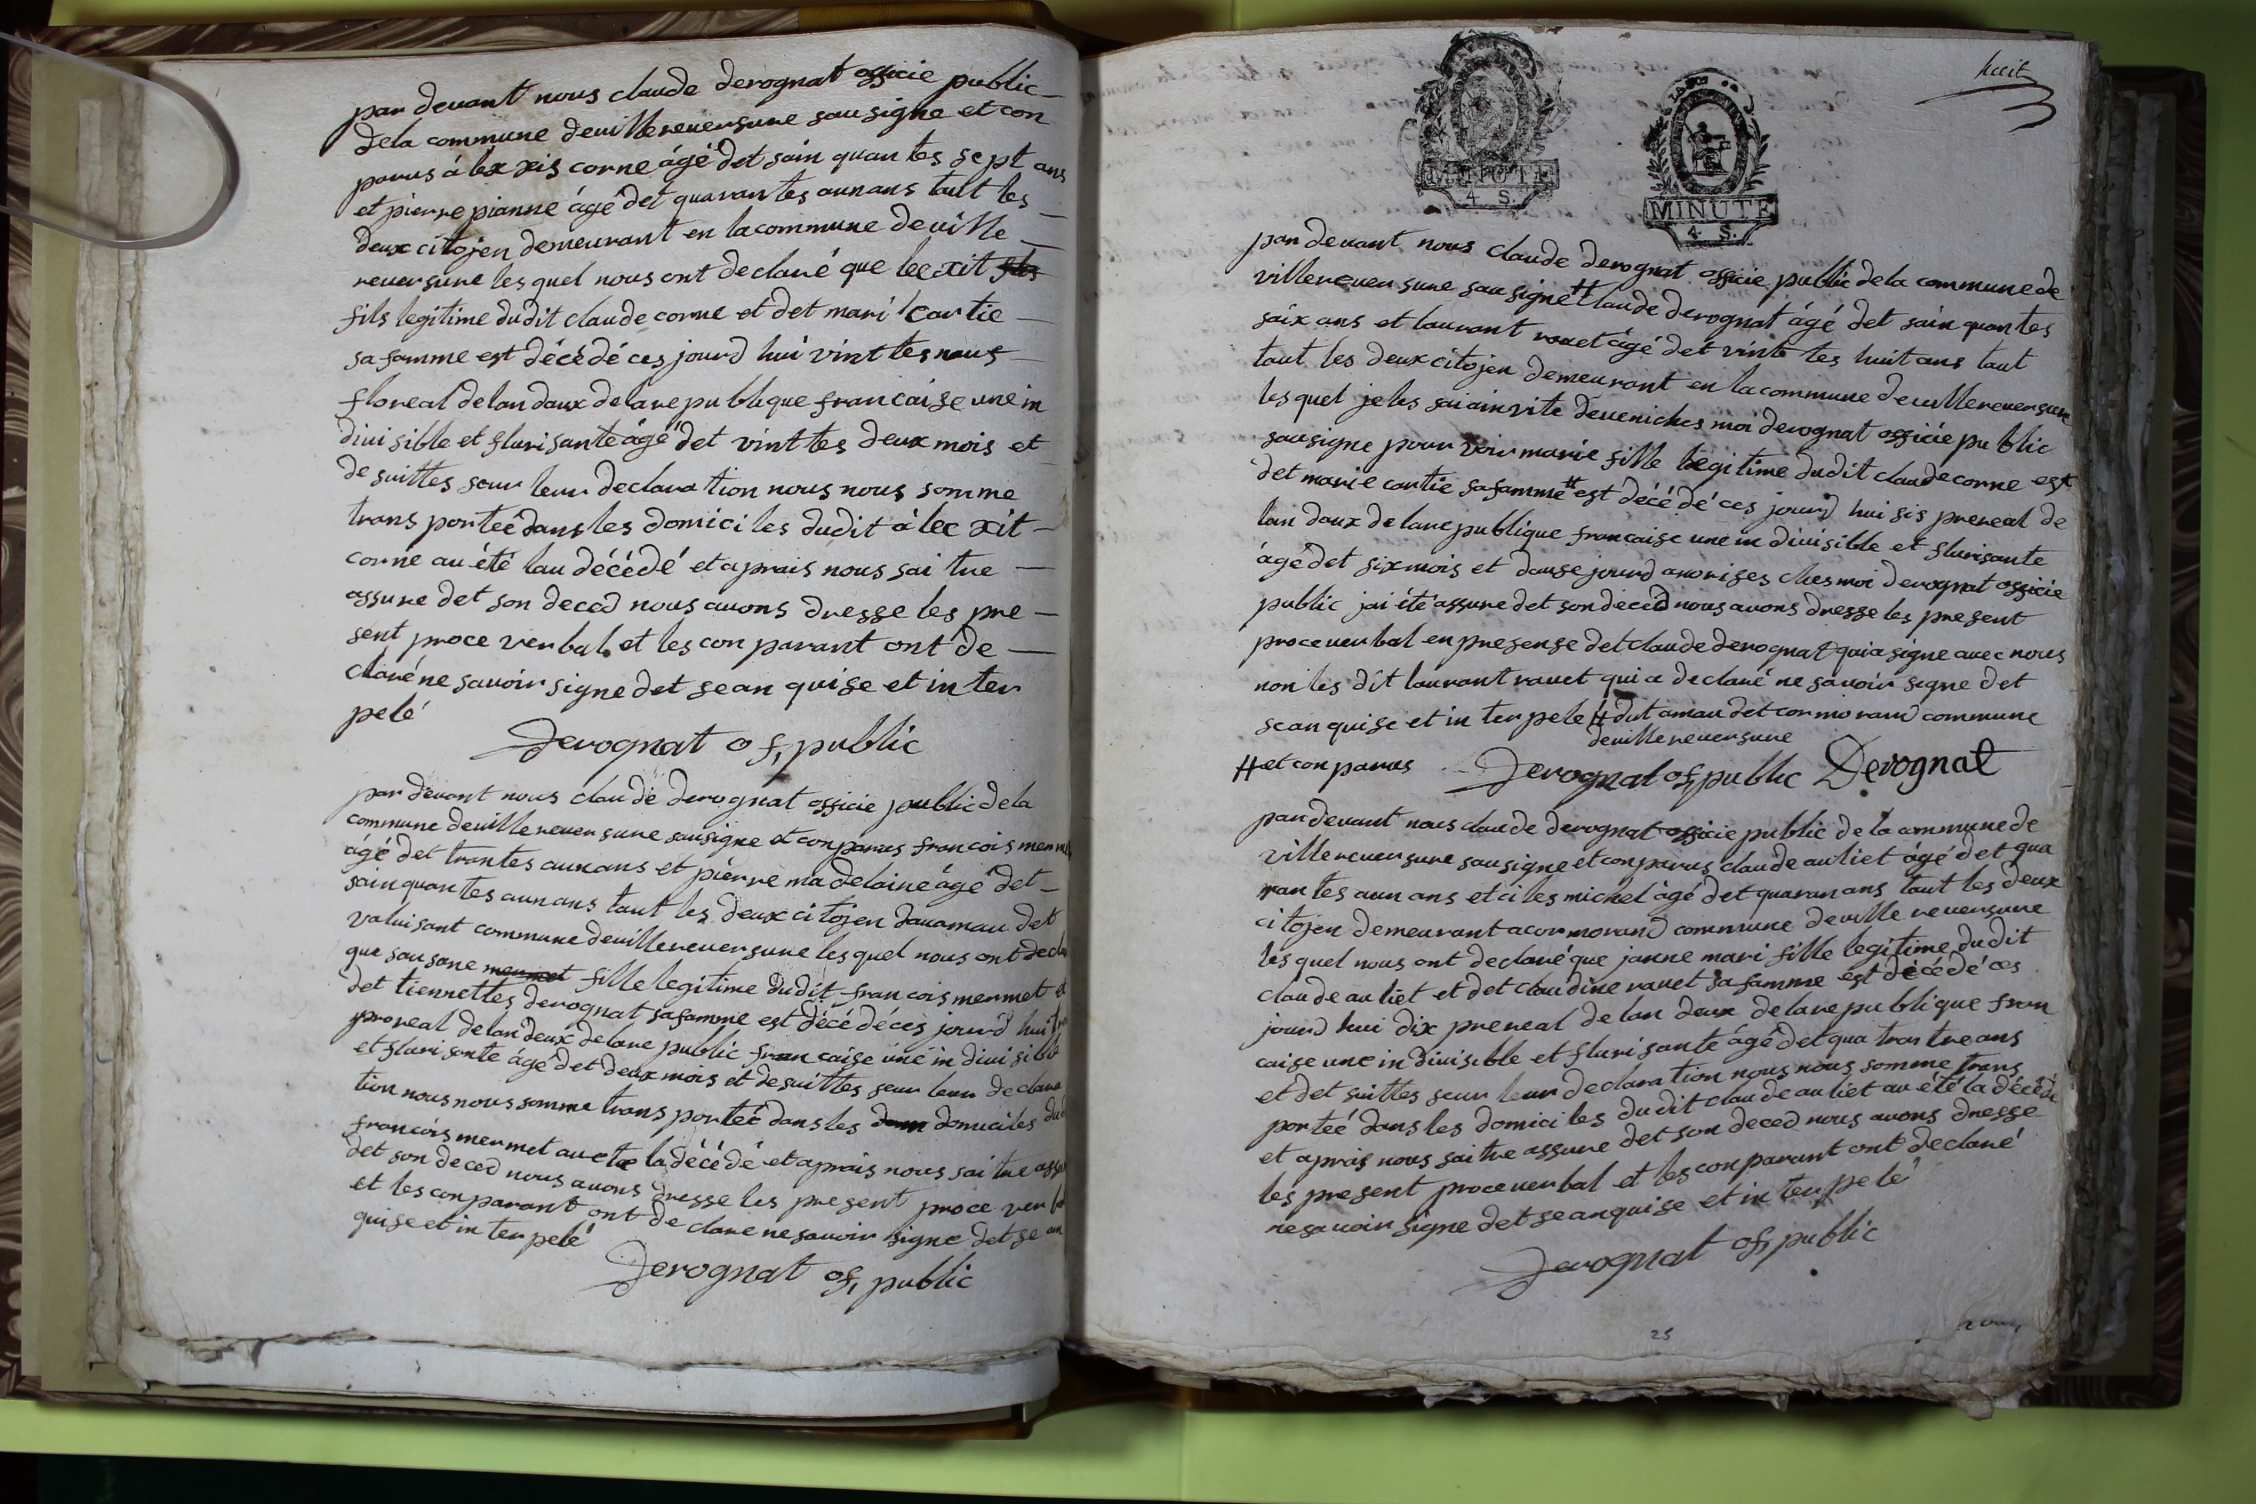 par devant nous claude derognat officie public
dela commune devillereversure sousigne et con
parus à lex xis corne àgé det sain quantes sept ans
et pierre pianne àgé det quarantes aunans tout les
deux citojen demeurant en lacommune deville
reversure les quel nous ont declaré que lecxit
fils legitime dudit claude corne et det mari cartie
sa famme est décédé ces jourd hui vinttes nous
floreal delan daux delarepublique francaise unein
divisible et flurisante àgé det vinttes deux mois et
de suittes sour leur declaration nous nous somme
trans porteé dans les domiciles dudit à lec xit
corne au été lau décédé et aprais nous sai tre
assure det son deced nous avons dresse les pre
sent proce verbal et les conparant ont de
claré ne savoir signe det sean quise et in ter
pelé
Derognat of, public
par devant nous claude derognat officie public dela
commune devillereversure sousigne et conparus francois mermet
àgé det trantes aunans et piérre madelaine àgé det
sainquantes aunans tout les deux citojen dauamau det
valuisant commune devillereversure lesquel nous ont decla
que sousane mermet fille legitime dudit francois mermet et
det tiennettes derognat safamme est décédé ces jourd hui
proreal delan deux delare public francaise une in divisible
et flurisante àgé det deux mois et desuittes sour leur declara
tion nous nous somme trans porteé dans les domiciles du
francois mermet au ete la décédé et aprais nous sai tre assu
det son deced nous avons dresse les present proce ver ba
et les conparant ont declare nesavoir signe det se an
quise et in ter pelé
Derognat of, public
huit
MINUTE
4. S.
MINUTE
4. S.
par devant nous claude derognat officie public dela commune de
villereversure sousigne # claude derognat àgé det sain quantes
saix ans et laurant rauet àgé det vint tes huit ans tout
tout les deux citojen demeurant en lacommune devillereversure
les quel jeles sai ainvite devenirches moi derognat officie public
sousigne pour voir marie fille legitime dudit claude corne est
det marie cartie sa famme # est décédé ces jourd hui sis prereal de
lan daux delarepublique francaise une in divisible et flurisante
àgé det six mois et dousejourd anorises ches moi derognat officie
public jai été assure det son deced nous avons dresse les present
proceverbal en presense det claude derognat quia signe avec nous
non les dit laurant rauet qui a declaré ne savoir signe det
sean quise et in ter pelé # dut amau det cormorand commune
devillereversure
# et conparus Derognat of, public Derognat
par devant nous claude derognat officie public de la commune de
villereversure sousigne et conparus claude auliet àgé det qua
rantes aun ans et ciles michel àgé det quaran ans tout les deux
citojen demeurant a cormorand commune deville reversure
les quel nous ont declaré que janne mari fille legitime dudit
claude auliet et det claudine rauet safamme est décédé ces
jourd hui dix prereal de lan deux delarepublique fran
caise une in divisible et flurisante àgé det qua trantre ans
et det suittes sour leur declaration nous nous somme trans
porteé dans les domiciles dudit claude auliet au été la décédé
et aprais nous saitre assure det son deced nous avons dresse
les present proceverbal et les conparant ont declaré
nesavoir signe det seanquise et in ter pelé
Derognat of, public
25